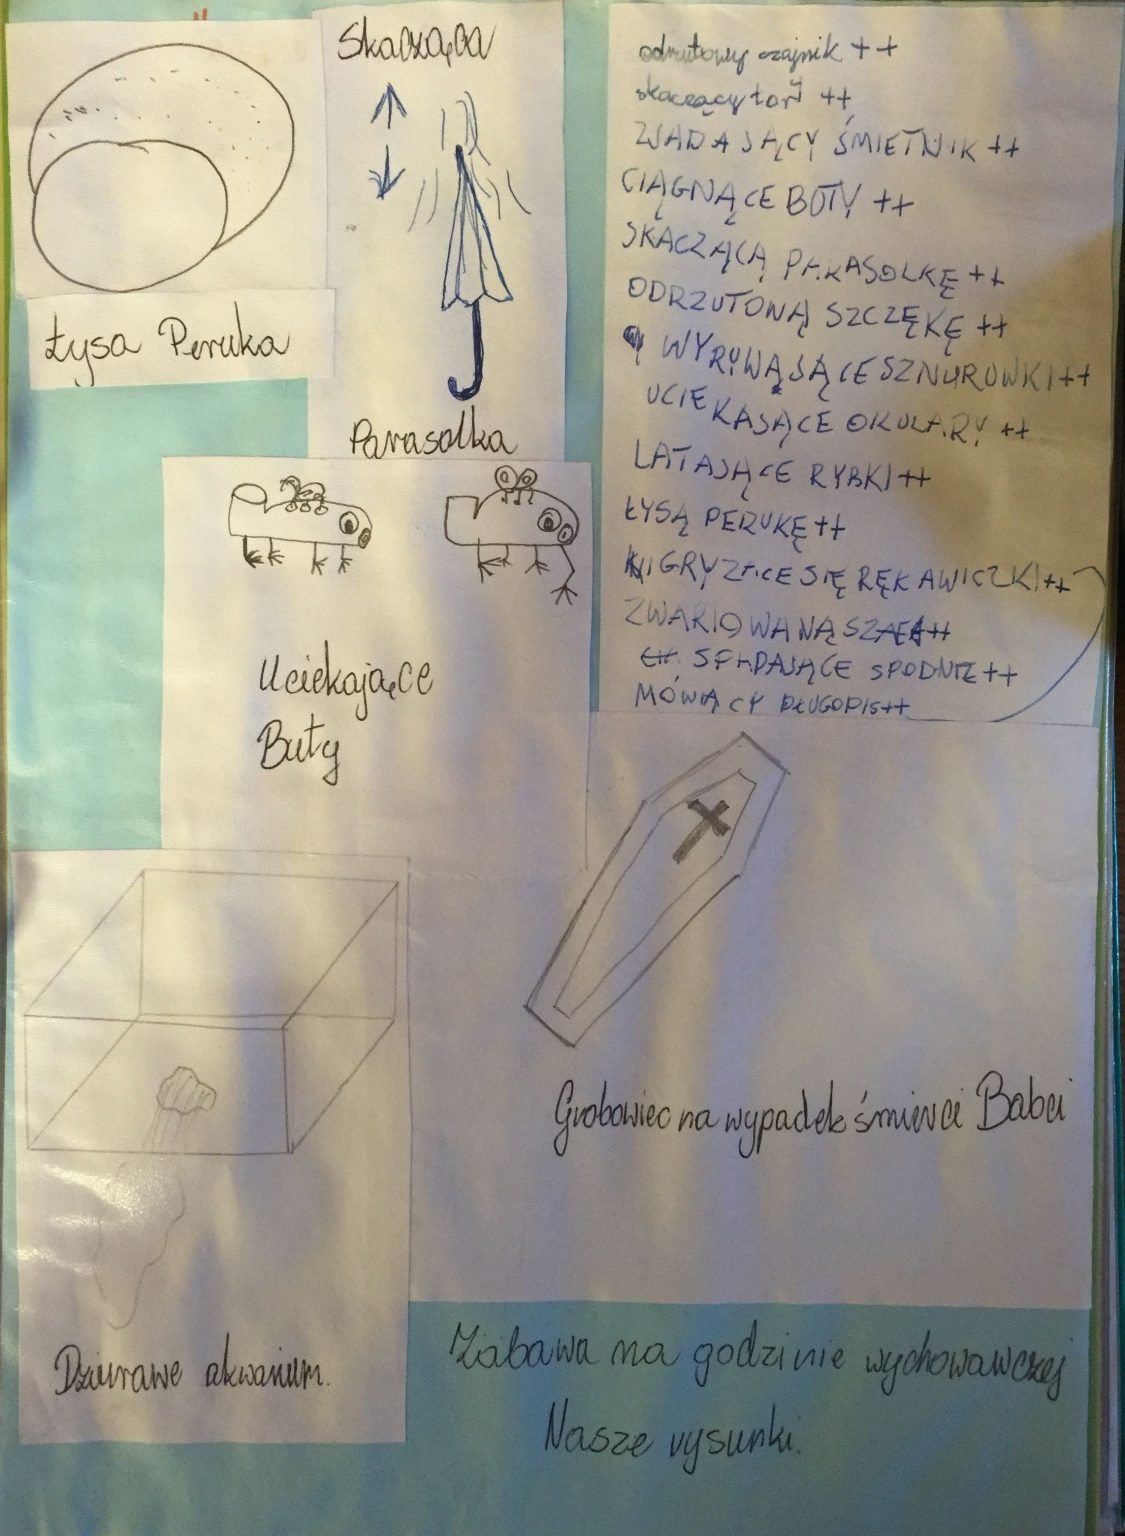 Łysa Peruka
Skacząca
Parasolka
odrutowy czajnik ++
skaczący tort ++
ZJADAJĄCY ŚMIETNIK ++
CIĄGNĄCE BOTY ++
SKACZĄCĄ PARASOLKĘ ++
ODRZUTONĄ SZCZĘKĘ ++
WYRYWAJĄCE SZNUROWKI ++
UCIEKAJĄCE OKULARY ++
LATAJĄCE RYBKI ++
ŁYSĄ PERUKĘ ++
GRYZĄCE SIĘ RĘKAWICZKI ++
ZWARIOWANĄ SZAFĘ ++
SPADAJĄCE SPODNIE ++
MÓWIĄCY DŁUGOPIS ++
Uciekające
Buty
Grobowiec na wypadek śmierci Babci
Dziurawe akwarium.
Zabawa na godzinie wychowawczej
Nasze rysunki.